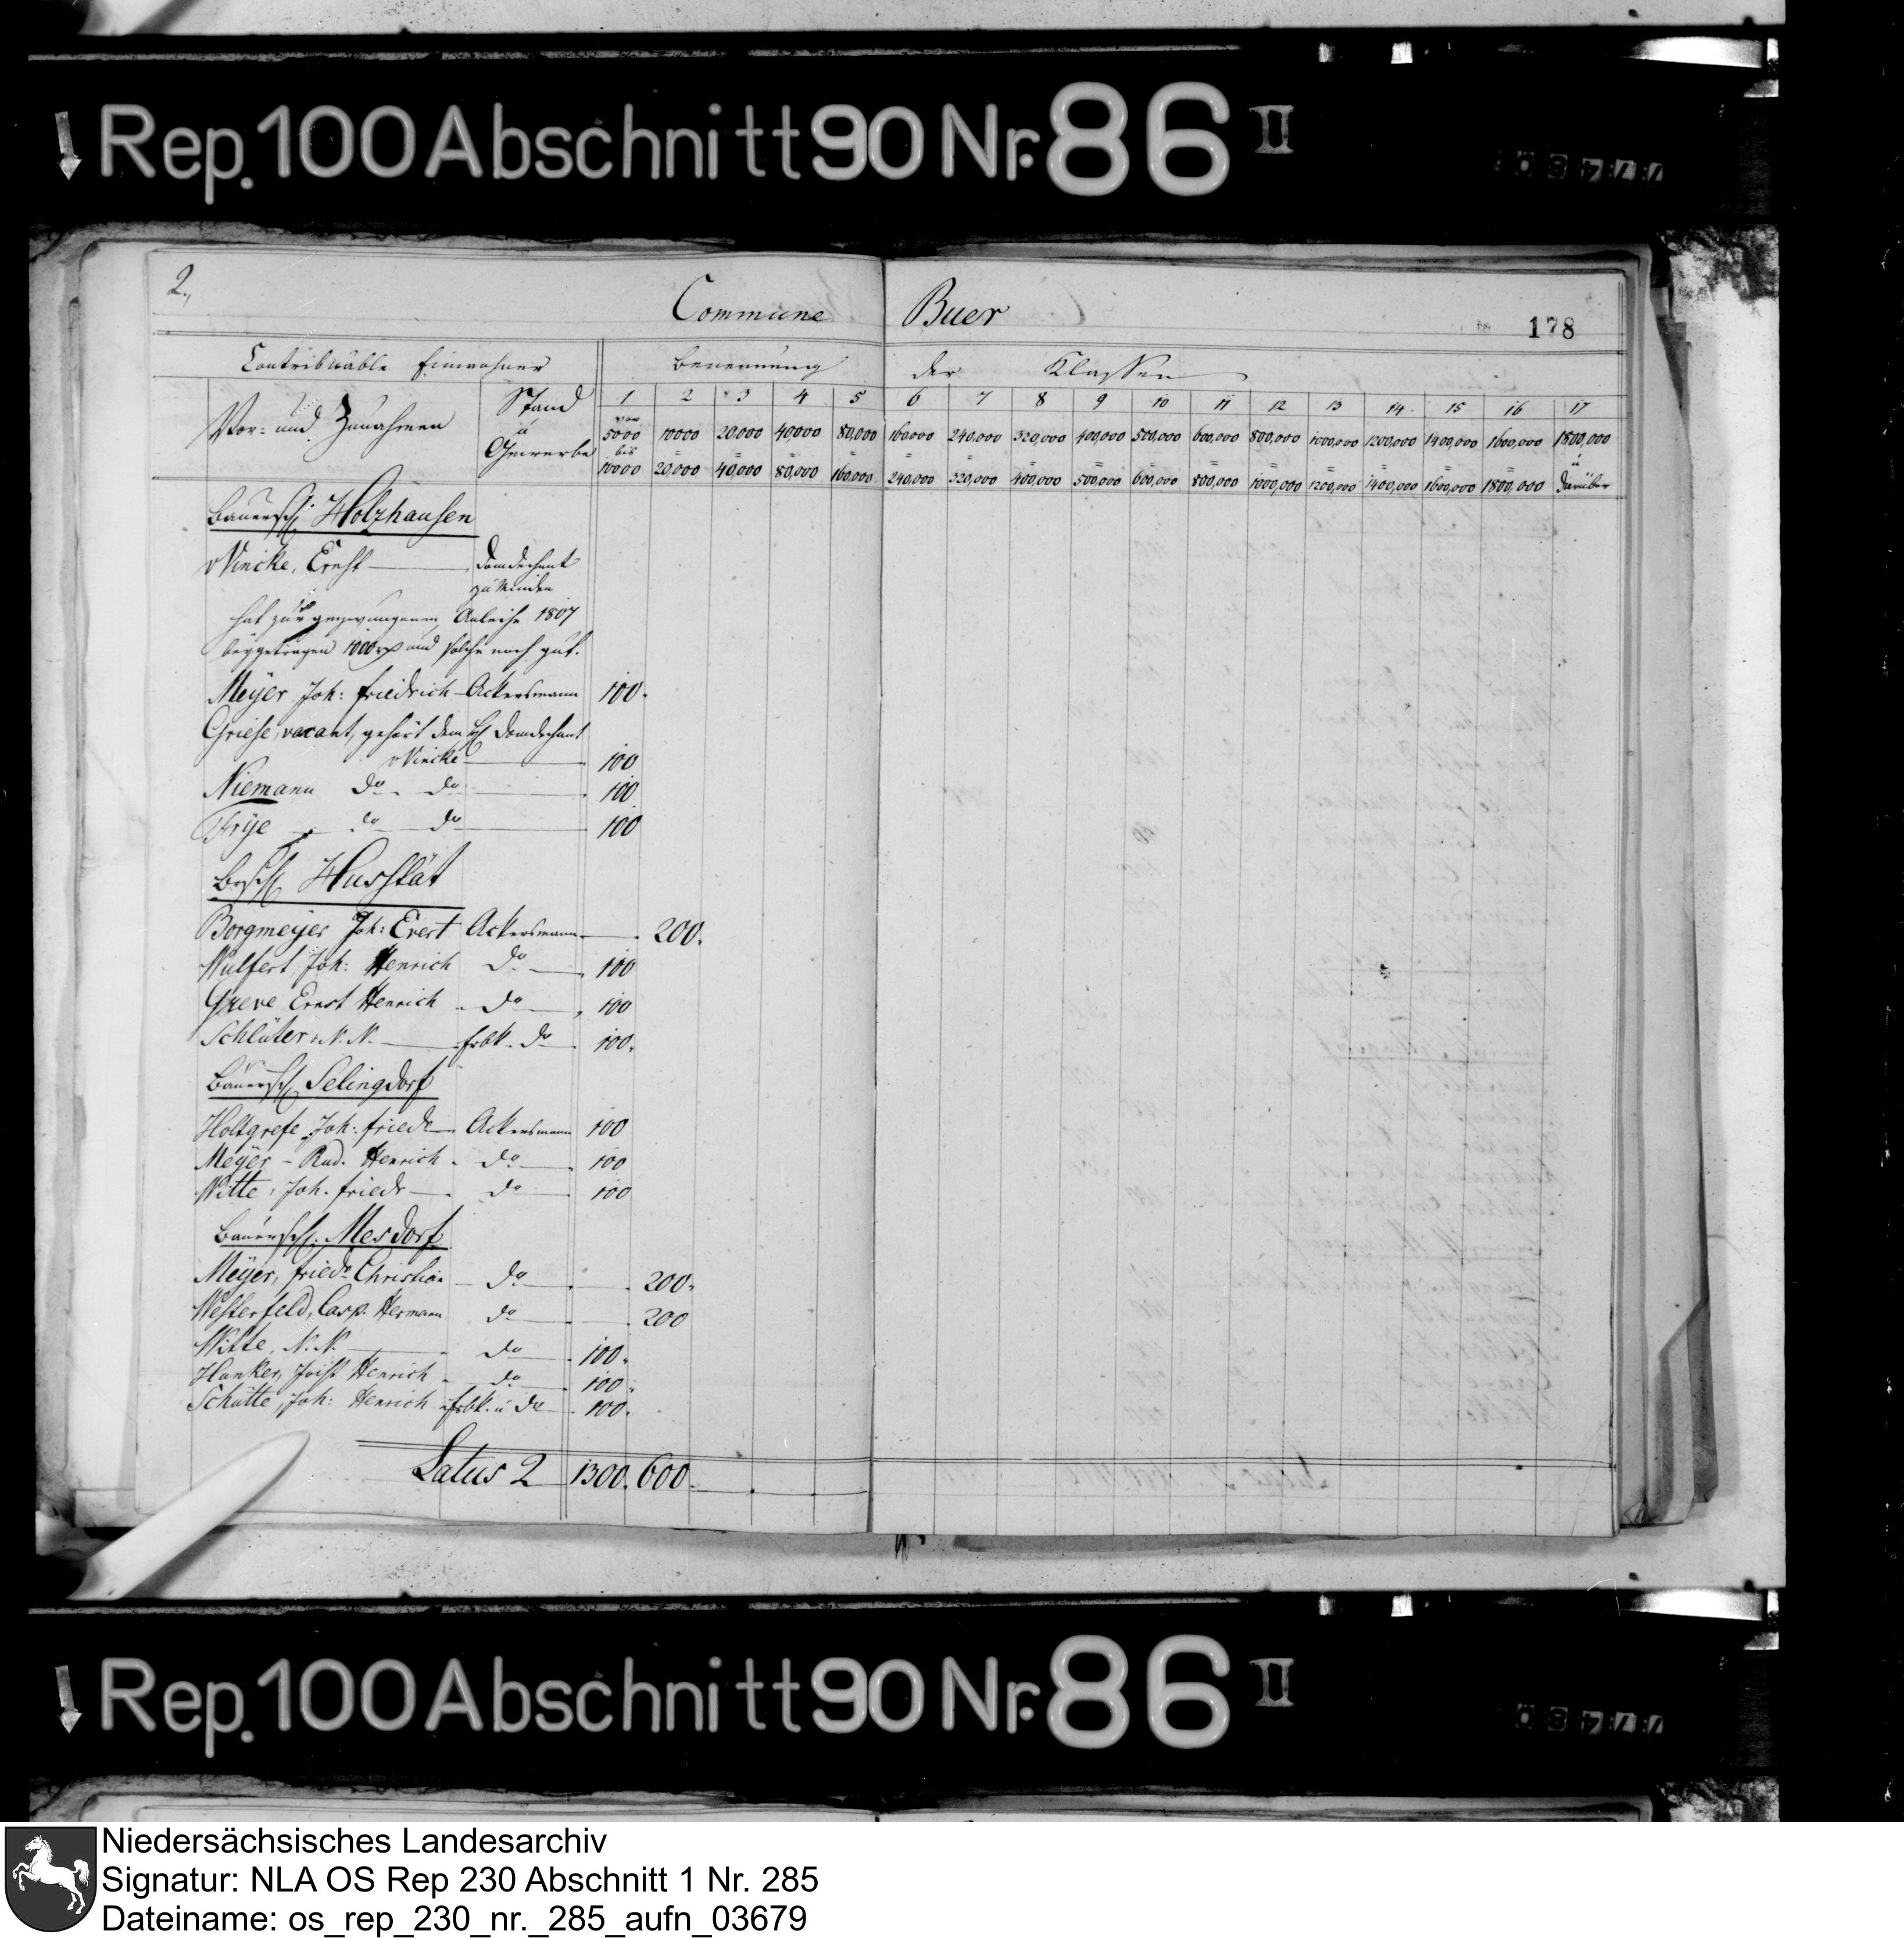 Rep. 100 Abschnitt 90 Nr. 86 II
2.,
Commune Buer
178
Contribuable Einwohner Benennung der Klassen
Vor- und Zunahmen Stand u Gewerbe
1 2 3 4 5 6 7 8 9 10 11 12 13 14. 15 16 17
von 5000 10000 20,000 40,000 80,000 160,000 240,000 320,000 400,000 500,000 600,000 800,000 1000,000 1200,000 1400,000 1600,000 1800,000
bis 10000 20,000 40,000 80,000 160,000 240,000 320,000 400,000 500,000 600,000 800,000 1000,000 1200,000 1400,000 1600,000 1800,000 u darüber
Bauersch. Holzhausen
vVincke, Ernst Domdechant
zu Minden
hat zur gezwungenen Anleihe 1807
beygetragen 1000 und solche noch gut.
Meÿer Joh: Friedrich Ackersmann 100.
Griese, vacant, gehört dem H Domdechant
vVincke 100
Niemann do. do 100
Frÿe do do 100
Brsch Husstät
Borgmeyer Joh: Evert Ackersmann 200.
Wulfert Joh: Henrich do. 100
Greve Ernst Henrich do 100
Schlüter N. N. Erbk. do 100.
Bauersch Selingdorf
Holtgrefe Joh: Friedr Ackersmann 100
Meÿer - Rud. Henrich do. 100
Witte, Joh. Friedr do 100
Bauersch. Mesdorf
Meÿer, Friedr Christian do 200.
Westerfeld, Casp. Hermann do 200
Witte, N. N. do 100.
Hanker, Henrich do 100.
Schütte, Joh: Henrich Erbk. u do 100.
Latus 2 1300. 600.
Rep. 100 Abschnitt 90 Nr. 86 II
Niedersächsisches Landesarchiv
Signatur: NLA OS Rep 230 Abschnitt 1 Nr. 285
Dateiname: os_rep_230_nr._285_aufn_03679